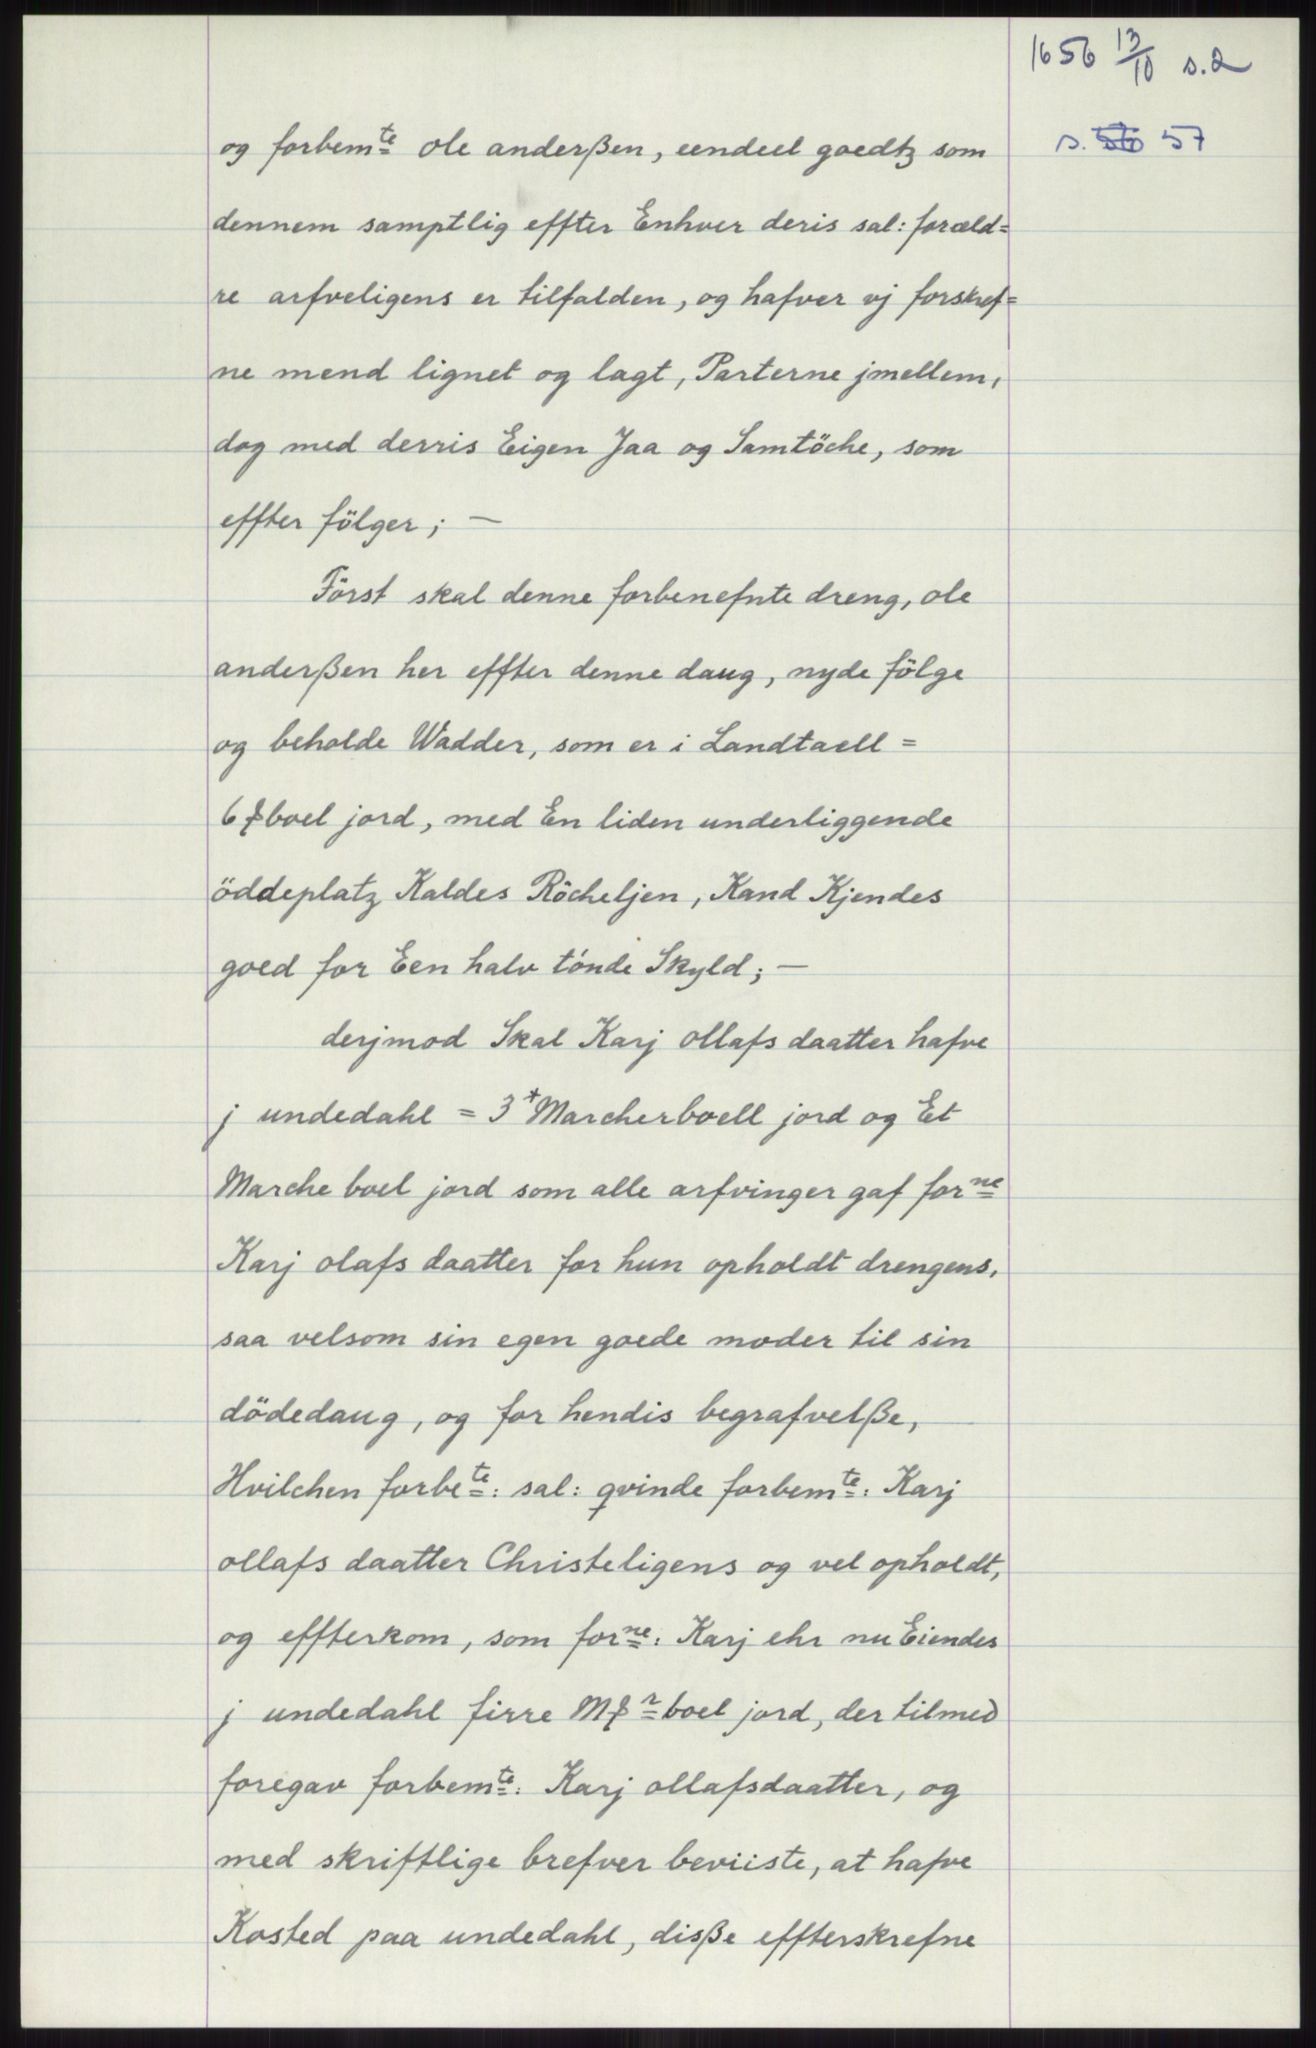 1656 13/10 s.2
s. 57
og forbemte ole anderßen, eendeel goedtz som
dennem samptlig effter Enhver deris sal: foræld=
re arfveligens er tilfalden, og hafver vj forskref=
ne mend lignet og lagt, Parterne jmellem,
dog med derris Eigen Jaa og Samtöche, som
effter fölger; —
Först skal denne forbenefnte dreng, ole
anderßen her effter denne daug, nyde fölge
og beholde Wadder, som er i Landtaell =
6 ꝑboel jord, med En liden underliggende
öddeplatz Kaldes Röcheljen, Kand Kjendes
goed for Een halv tönde Skyld; —
derjmod Skal Karj ollafs daatter hafve
j undedahl = 3* Marcherboell jord og Et
Marche boel jord som alle arfvinger gaf forne
Karj olafs daatter for hun opholdt drengens,
saa velsom sin egen goede moder til sin
dödedaug, og for hendis begrafvelße,
Hvilchen forbete: sal: qvinde forbemte: Karj
ollafs daatter Christeligens og vel opholdt,
og effterkom, som forne: Karj ehr nu Eiendes
j undedahl firre Mꝑr boel jord, der tilmed
foregav forbemte: Karj ollafsdaatter, og
med skriftlige brefver beviiste, at hafve
Kosted paa undedahl, diße effterskrefne